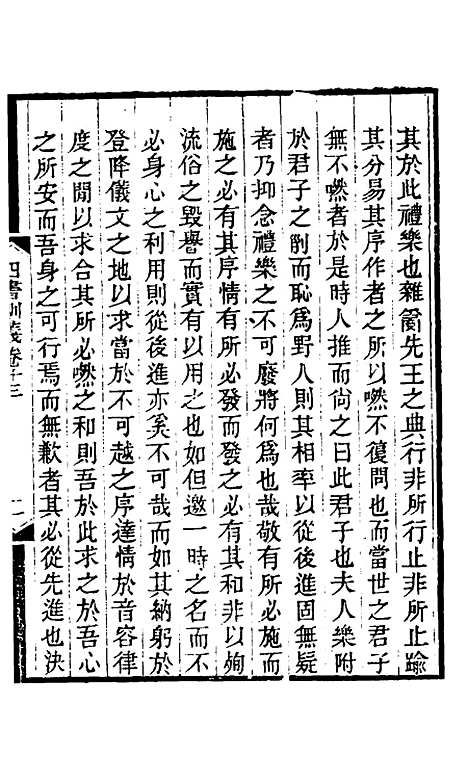 其於此禮樂也雜霤先王之典行非所行止非所止踰
其分易其序作者之所以嘫不復問也而當世之君子
無不嘫者於是時人推而尙之曰此君子也夫人樂附
於君子之列而恥爲野人則其相率以從後進固無疑
者乃抑念禮樂之不可廢將何爲也哉敬有所必施而
施之必有其序情有所必發而發之必有其和非以殉
流俗之毀譽而實有以用之也如但邀一時之名而不
必身心之利用則從後進亦奚不可哉而如其納躬於
登降儀文之地以求當於不可越之序達情於音容律
度之閒以求合其所必嘫之和則吾於此求之於吾心
之所安而吾身之可行焉而無歉者其必從先進也決
四書訓義卷十三
二